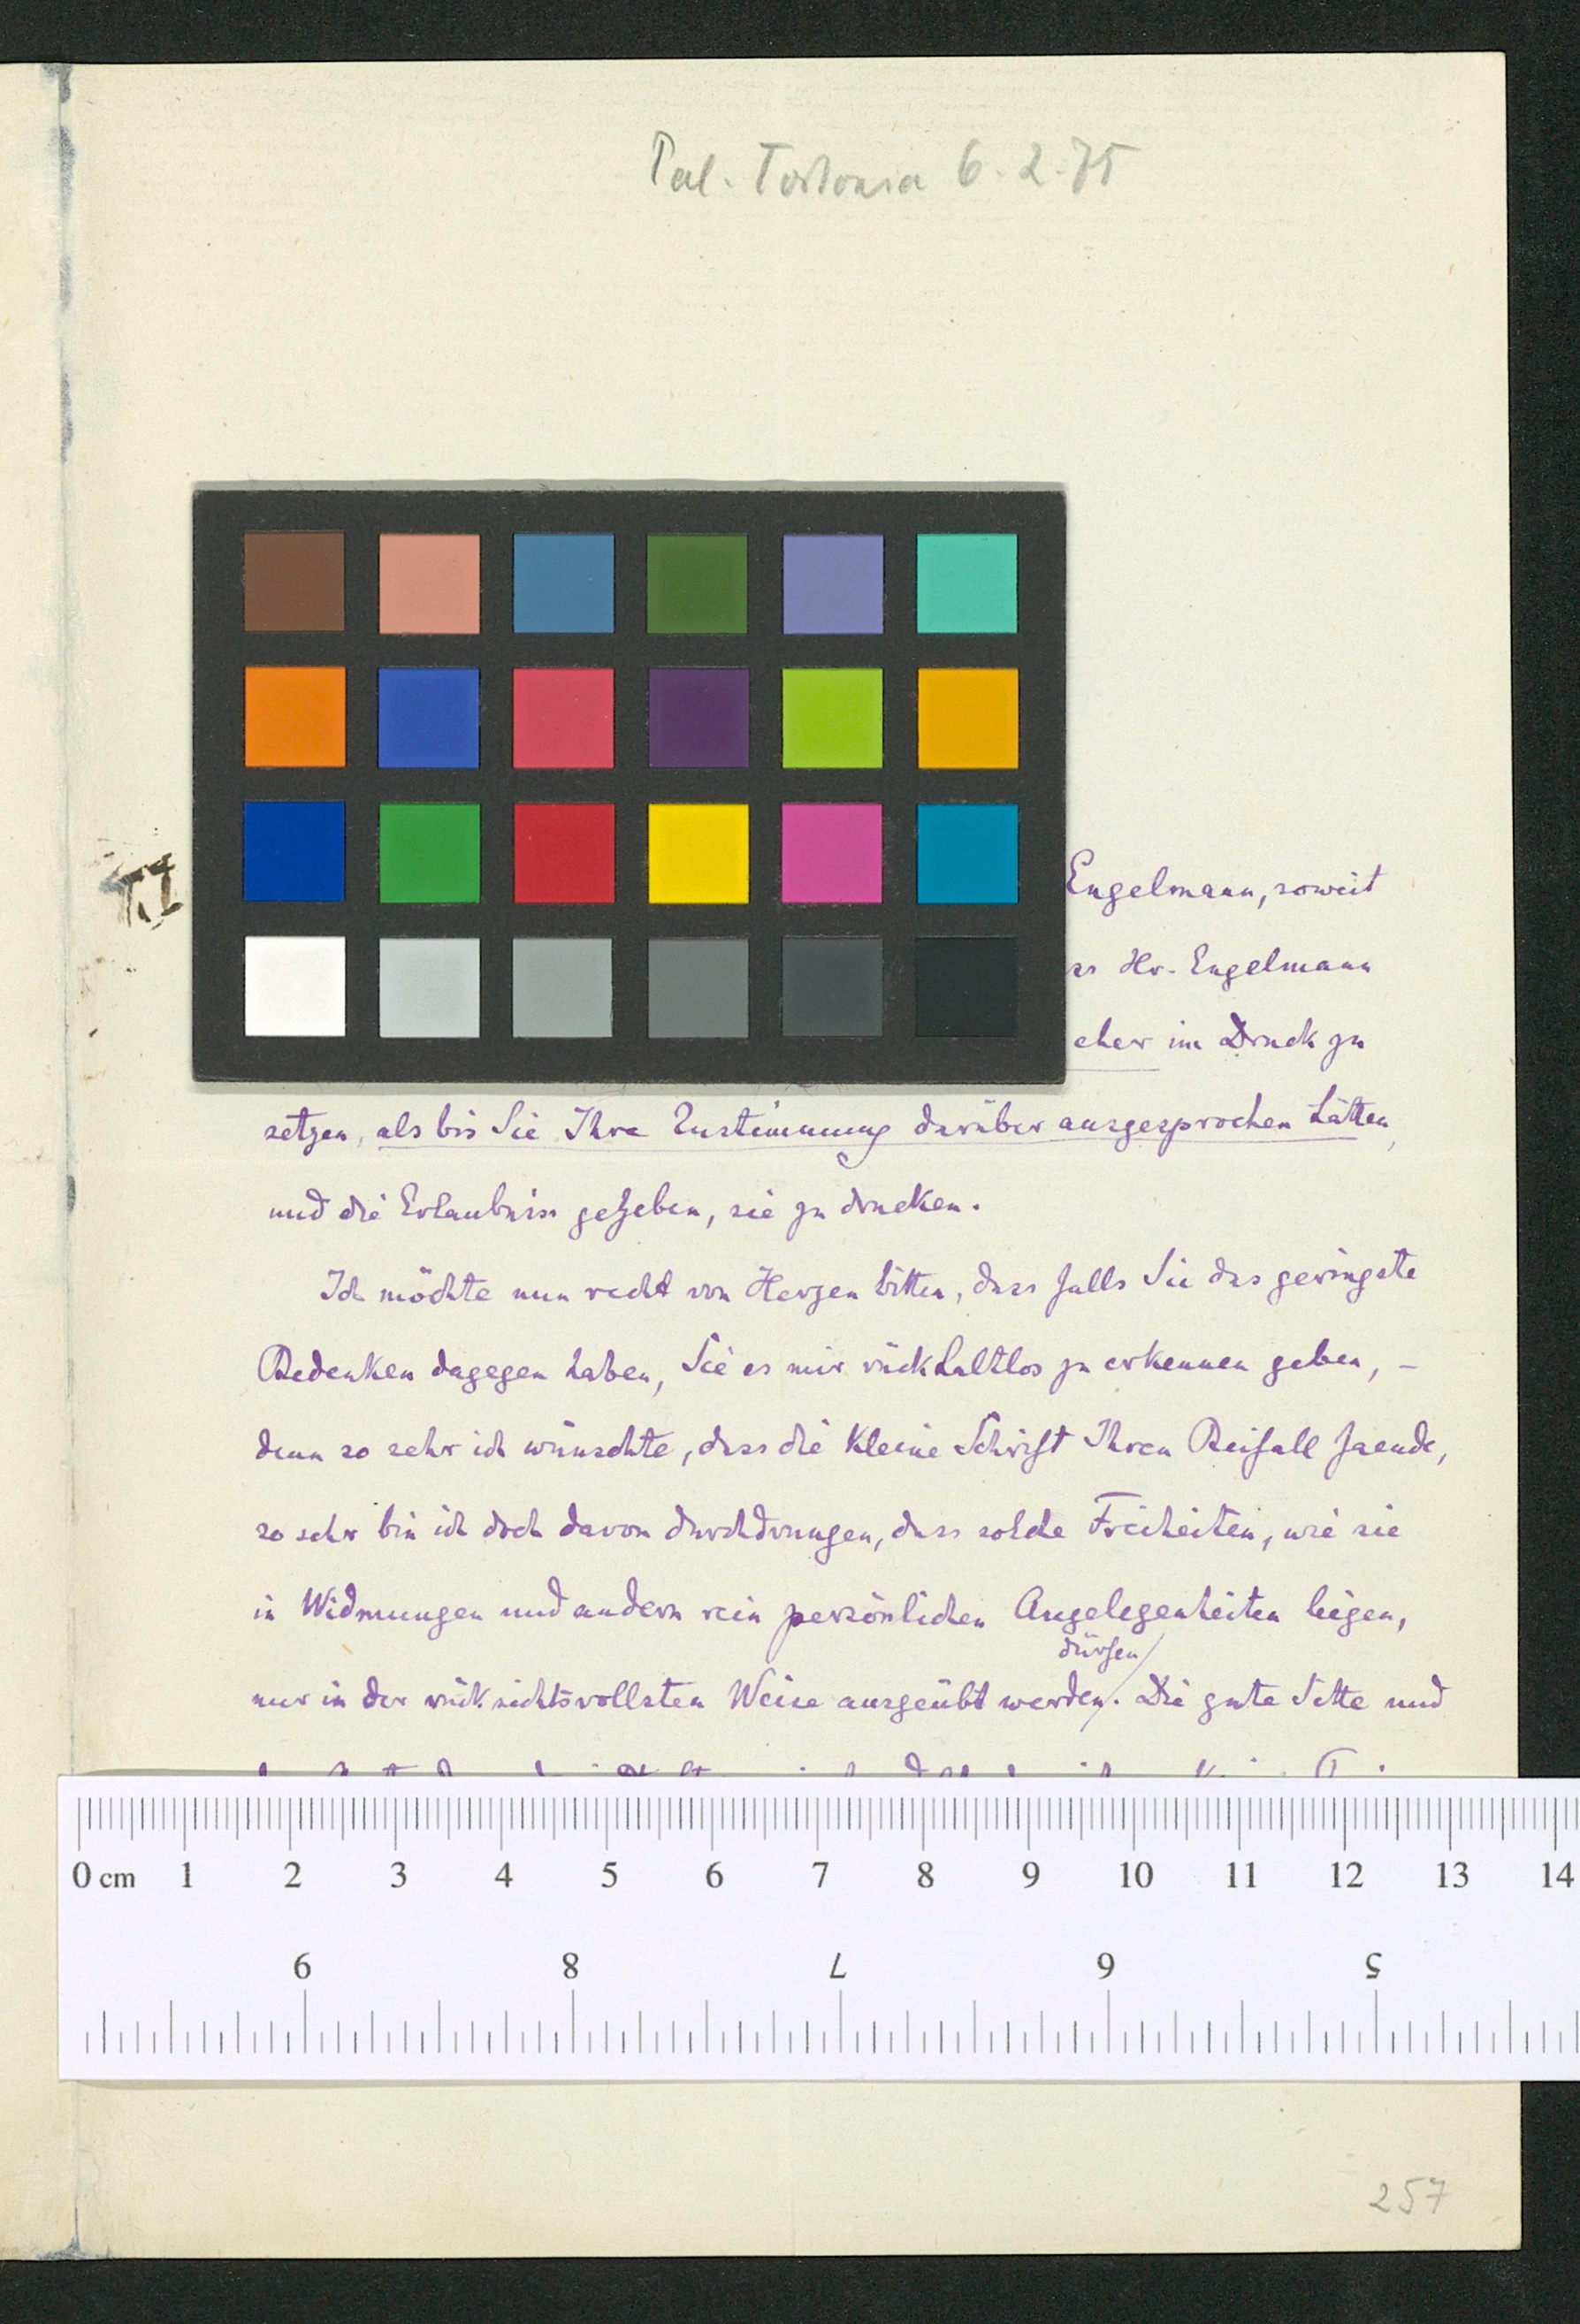 Pal. Torlonia 6.2.75
T.I
Engelmann, soweit
ss Hr. Engelmann
eher im Druck zu
setzen, als bis Sie Ihre Zustimmung darüber ausgesprochen hätten,
und die Erlaubniss gegeben, sie zu drucken.
Ich möchte nun recht von Herzen bitten, dass falls Sie das geringste
Bedenken dagegen haben, Sie es mir rückhaltlos zu erkennen geben, –
denn so sehr ich wünschte, dass die kleine Schrift Ihren Beifall faende,
so sehr bin ich doch davon durchdrungen, dass solche Freiheiten, wie sie
in Widmungen und andern rein persönlichen Angelegenheiten liegen,
dürfen
nur in der rücksichtsvollsten Weise ausgeübt werden. Die gute Sitte und
0 cm 1 2 3 4 5 6 7 8 9 10 11 12 13 14
9 8 7 6 5
257